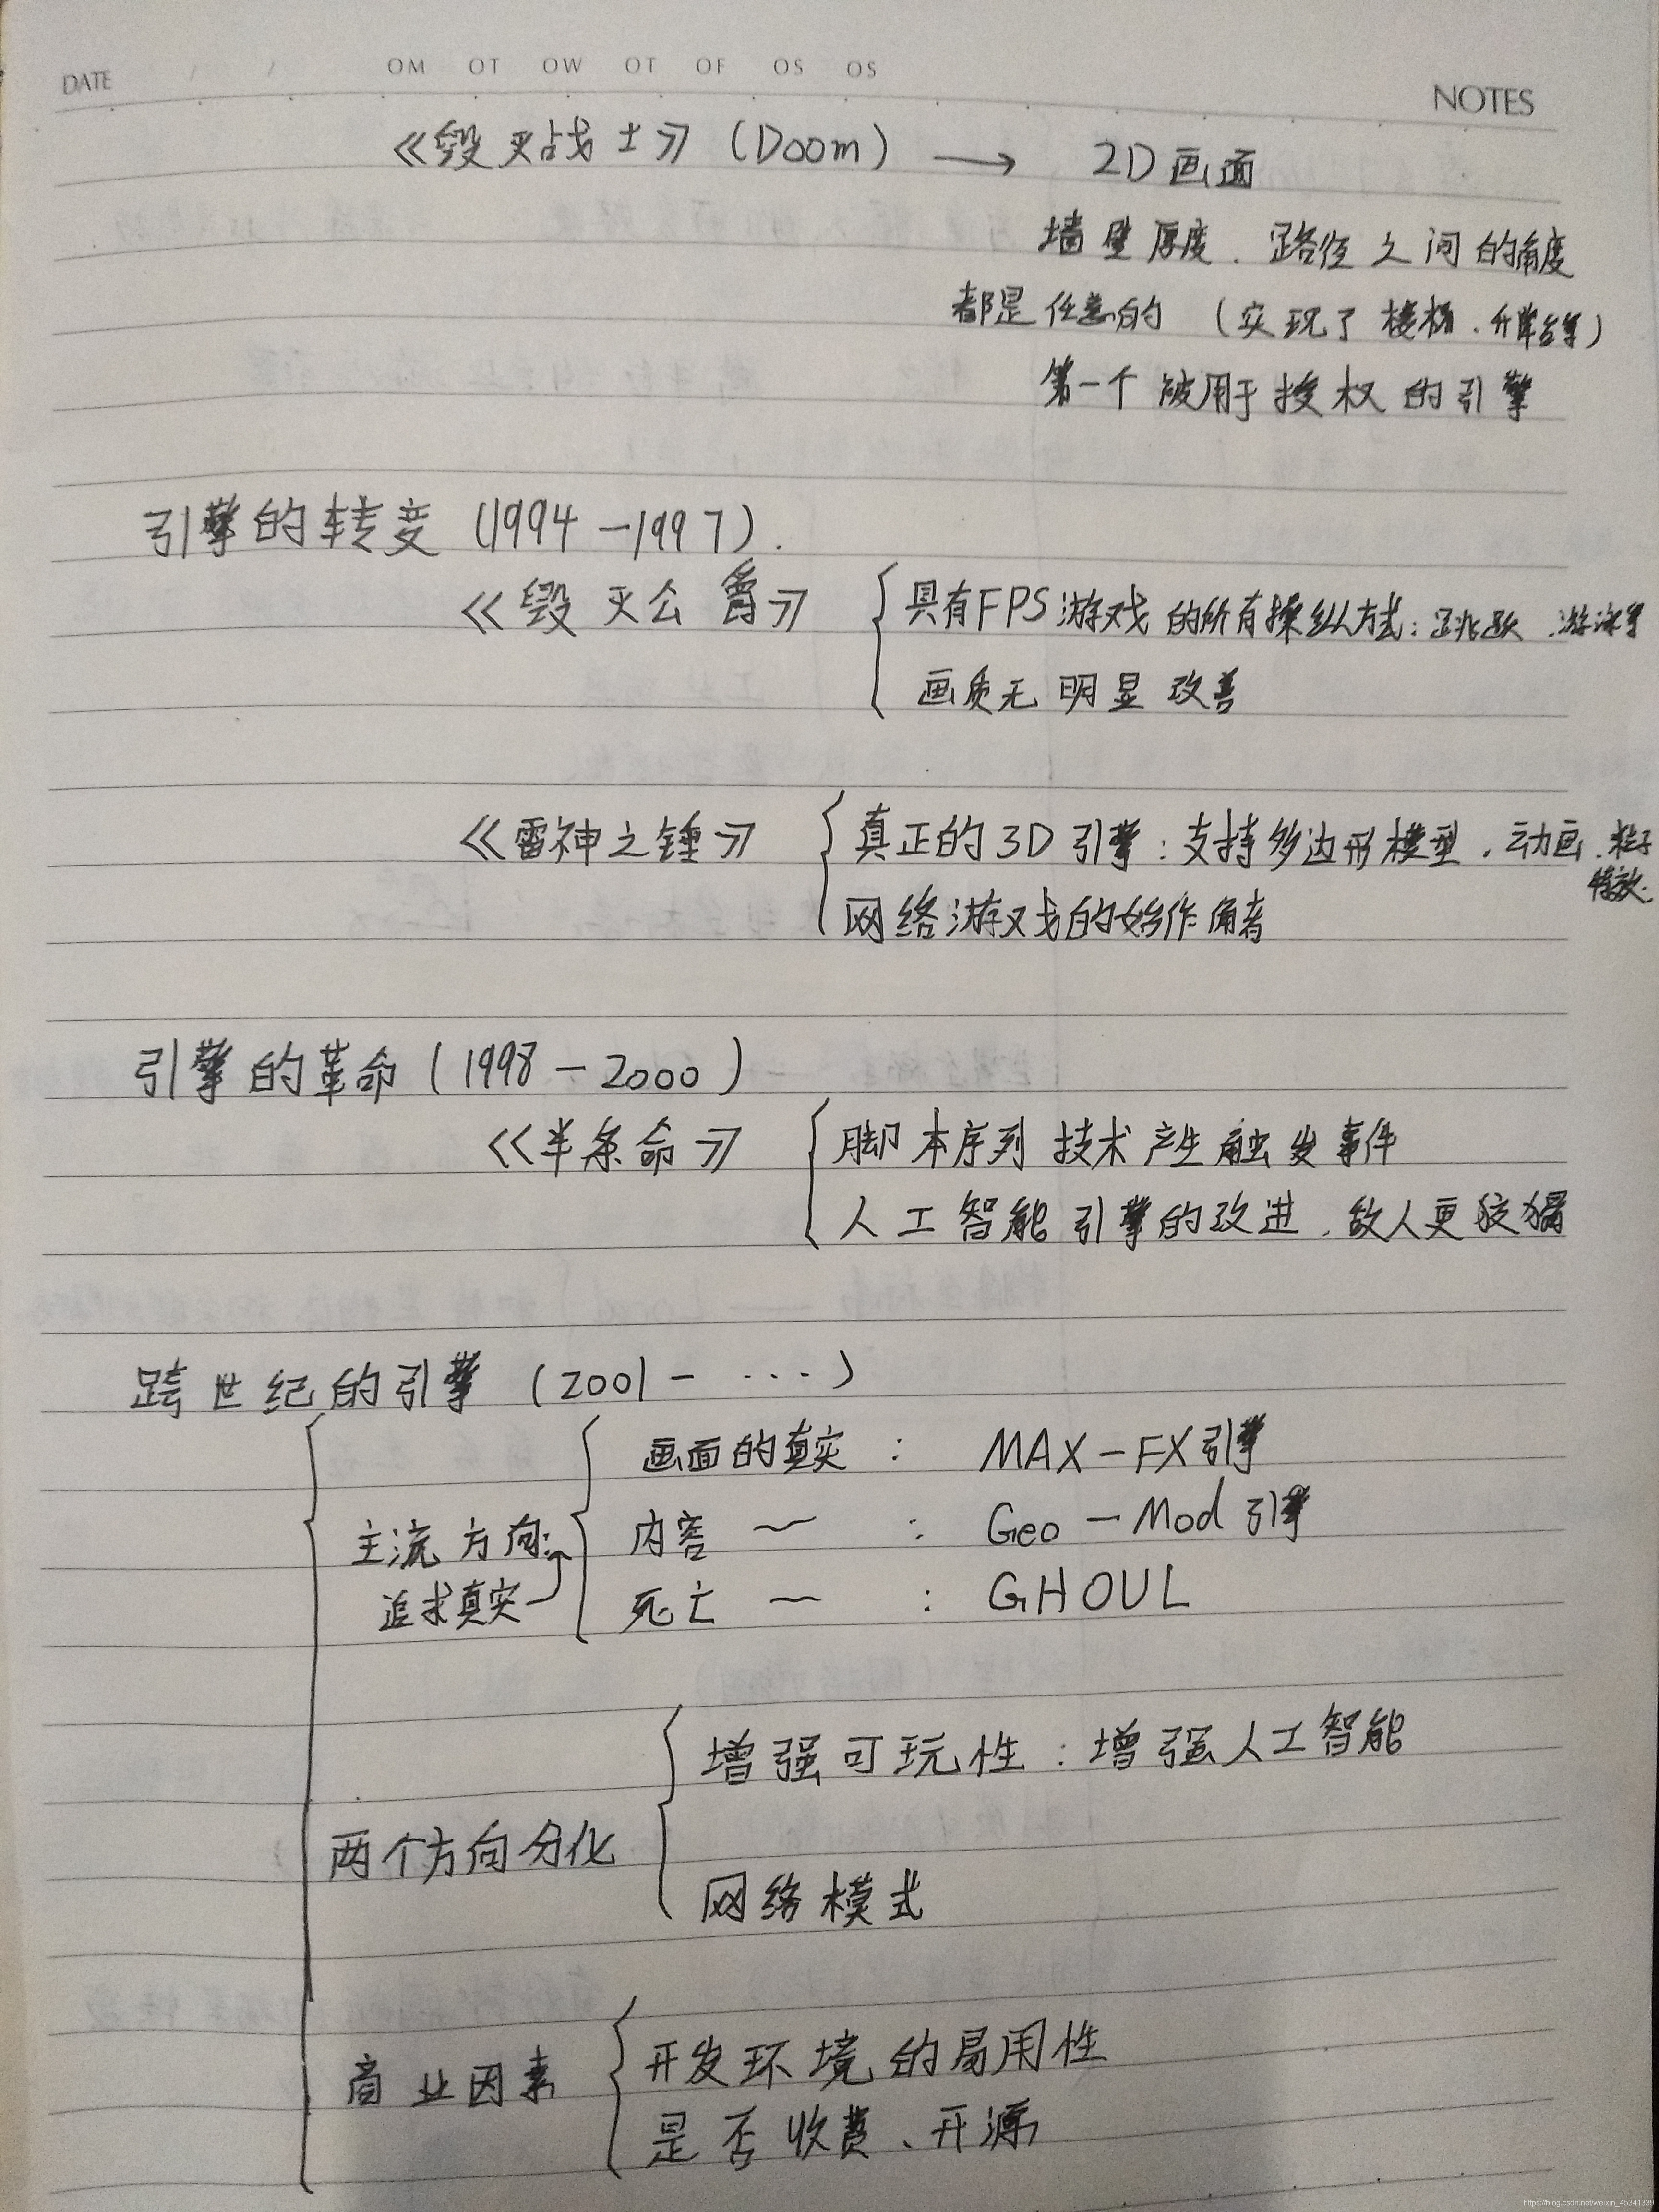 DATE / / OM OT OW OT OF OS OS
NOTES
《毁灭战士》(Doom) → 2D画面
墙壁厚度、路径之间的角度
都是任意的 (实现了楼梯、升降台等)
第一个被用于授权的引擎
引擎的转变 (1994-1997).
《毁灭公爵》 { 具有FPS游戏的所有操纵方式:跳跃、游泳等
画质无明显改善
《雷神之锤》 { 真正的3D引擎:支持多边形模型、动画、粒子
特效.
网络游戏的始作俑者
引擎的革命 (1998-2000)
《半条命》 { 脚本序列技术产生触发事件
人工智能引擎的改进、敌人更狡猾
跨世纪的引擎 (2001-····)
画面的真实 : MAX-FX引擎
主流方向: 内容 ~ : Geo-Mod引擎
追求真实 死亡 ~ : GHOUL
增强可玩性:增强人工智能
两个方向分化
网络模式
商业因素 { 开发环境的易用性
是否收费、开源
https://blog.csdn.net/weixin_45341339